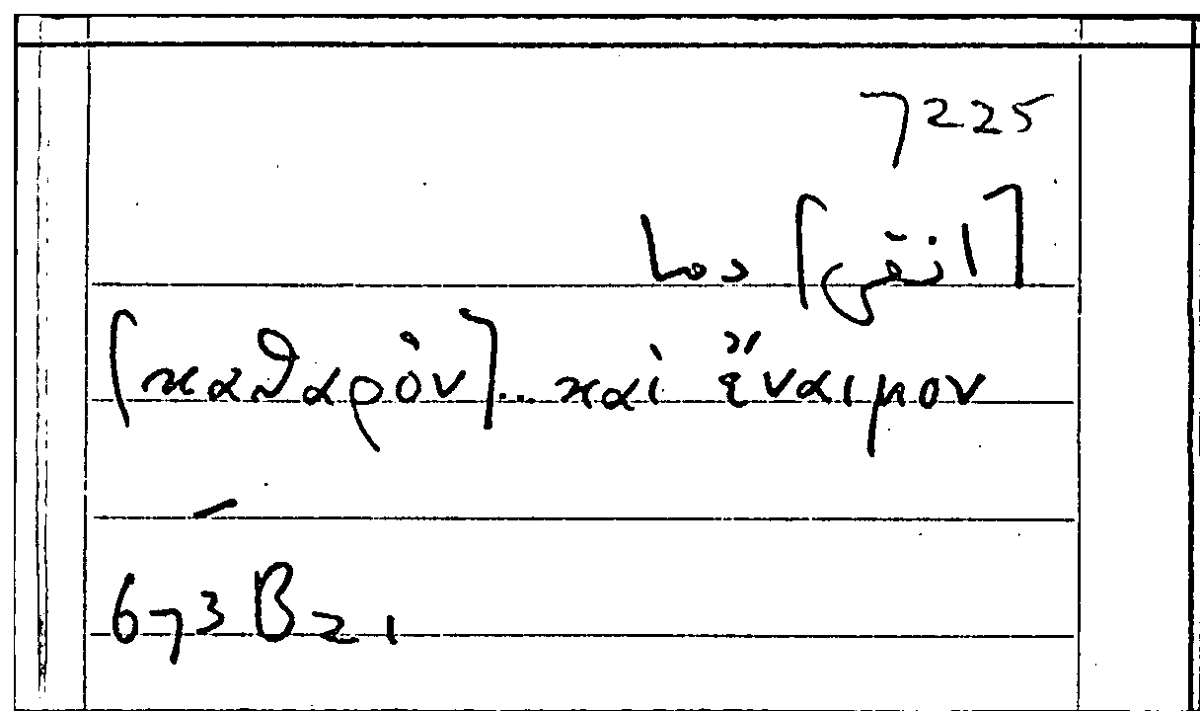 7225
[انقى] دما
[καθαρὸν]... καὶ ἔναιμον
673 B 21